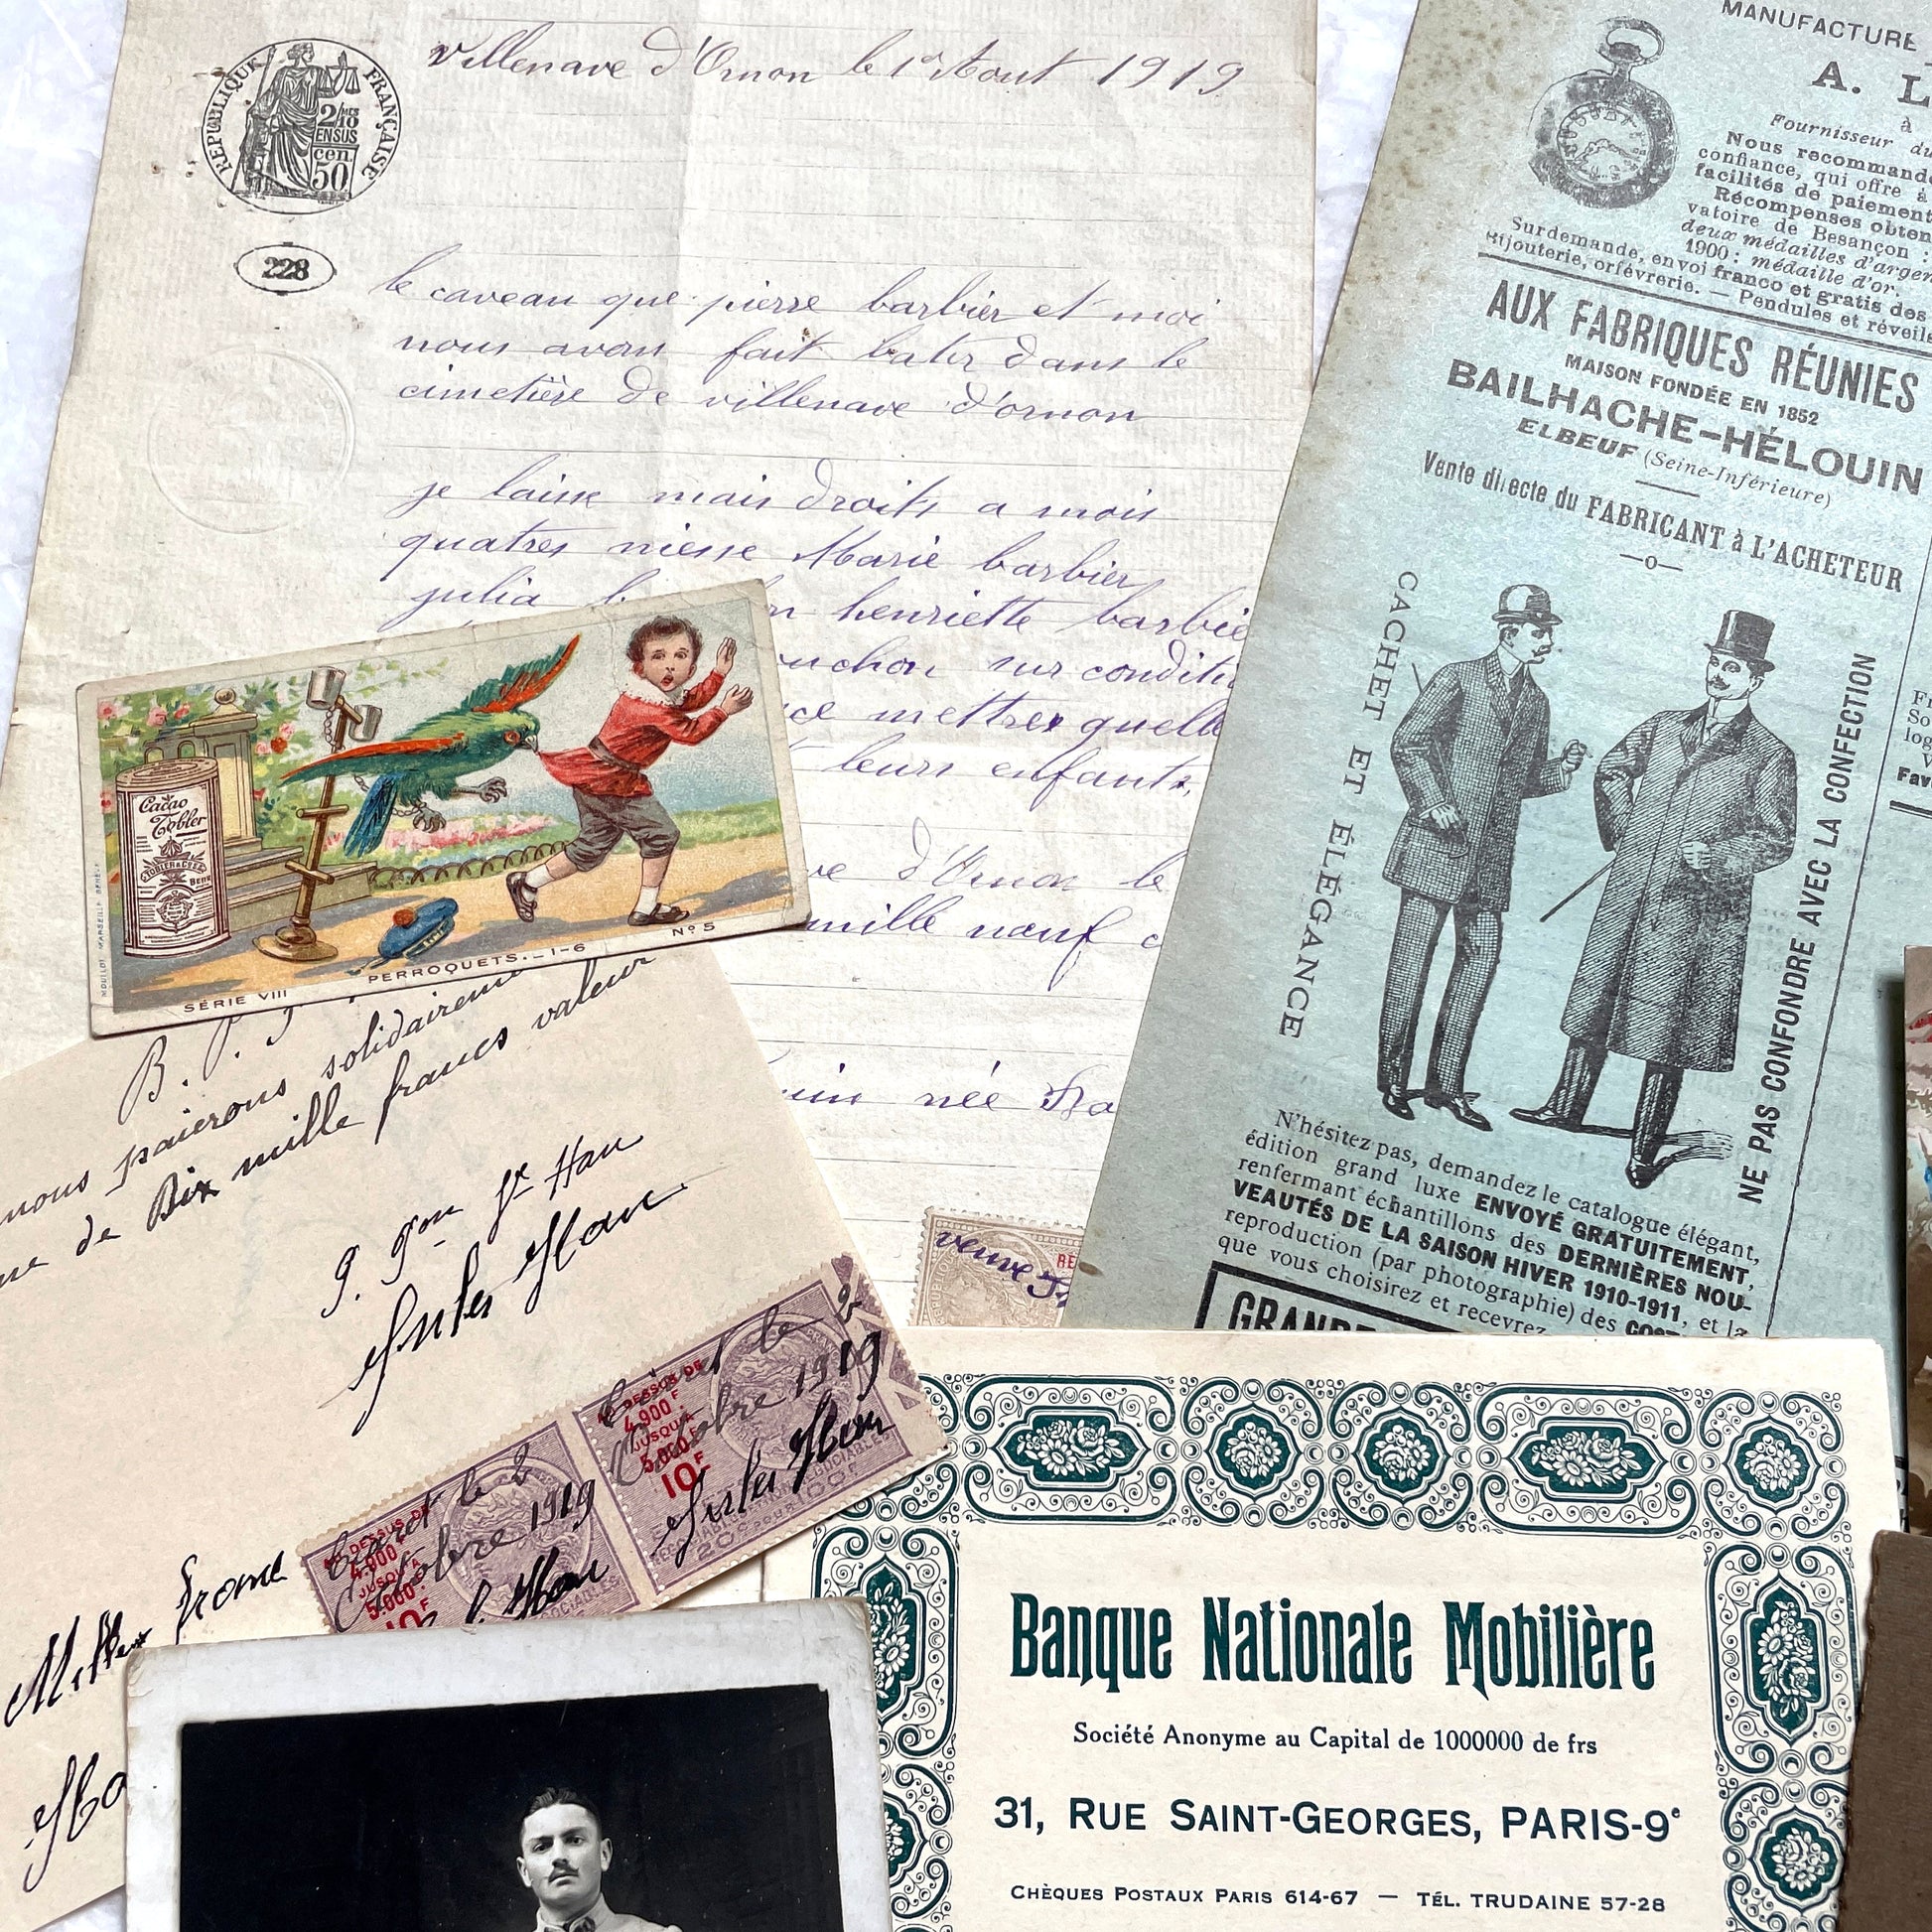 Villenave d'Ornon le 1er Aout 1919
REPUBLIQUE FRANÇAISE
2/10
EN SUS
50 cen
228
le caveau que pierre barbier et moi
nous avons fait batir dans le
cimetière de villenave d'ornon
je laisse mais droits a mois
quatres niesse Marie barbier
julia henriette barbie
ouchon sur conditi
mettrex quelle
leurs enfants,
ve d'Ornon le
mille neuf c
née
veuve
RÉ
Cacao
Tobler
TOBLER & Co S.A.
BERN
MOULLOT MARSEILLE
SÉRIE VIII PERROQUETS._1-6 No 5
B. P.
nous paierons solidairement
de Dix mille francs valeur
Jules Han
AU DESSUS DE
4.900 F
JUSQU'À
5.000 F
10F
le 2
Octobre 1919
Han
AU DESSUS DE
4.900 F
JUSQU'À
5.000 F
10F
le 2
Octobre 1919
Jules Han
MANUFACTURE
A. L
à
Fournisseur du
Nous recommand
confiance, qui offre à
facilités de paiement
Récompenses obten
vatoire de Besançon :
deux médailles d'argen
1900 : médaille d'or.
Sur demande, envoi franco et gratis des
Bijouterie, orfévrerie. — Pendules et réveils
AUX FABRIQUES RÉUNIES
MAISON FONDÉE EN 1852
BAILHACHE-HÉLOUIN
ELBEUF (Seine-Inférieure)
Vente directe du FABRICANT à L'ACHETEUR
—o—
CACHET ET ÉLÉGANCE
NE PAS CONFONDRE AVEC LA CONFECTION
N'hésitez pas, demandez le catalogue élégant,
édition grand luxe ENVOYÉ GRATUITEMENT,
renfermant échantillons des DERNIÈRES NOU-
VEAUTÉS DE LA SAISON HIVER 1910-1911, et la
reproduction (par photographie) des COST
que vous choisirez et recevrez
GRAND
Banque Nationale Mobilière
Société Anonyme au Capital de 1000000 de frs
31, RUE SAINT-GEORGES, PARIS-9e
CHÈQUES POSTAUX PARIS 614-67 — TÉL. TRUDAINE 57-28